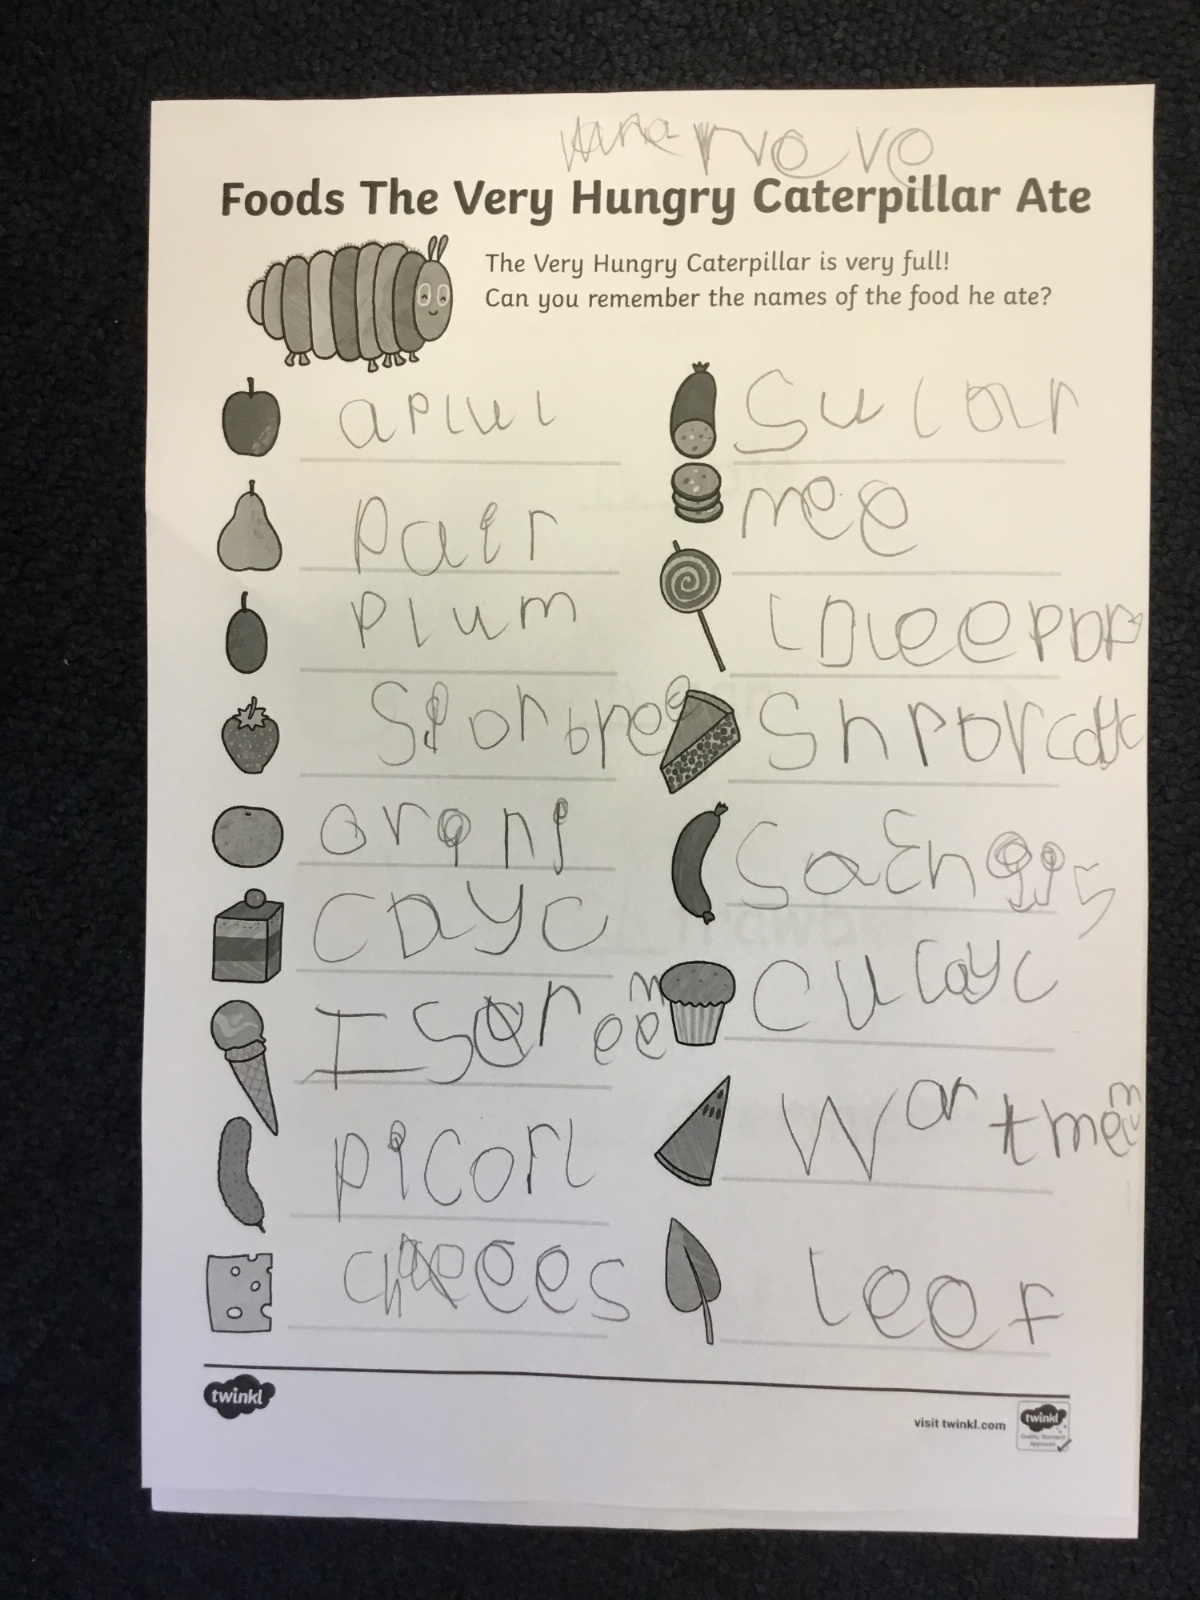 Foods The Very Hungry Caterpillar Ate
The Very Hungry Caterpillar is very full!
Can you remember the names of the food he ate?
aplul
pair
plum
Storbree
oranj
cayc
Iscreem
picorl
cheees
Sularmee
loleepop
Shrporcac
saEnggs
cucayc
Wartmem
leef
twinkl
visit twinkl.com
twinkl
Quality Standard
Approved